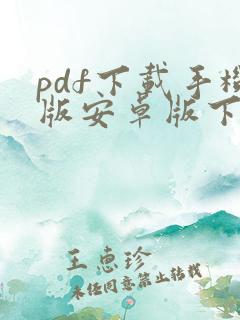 pdf下载手机
版安卓版下
王惠珍
未经同意禁止转载